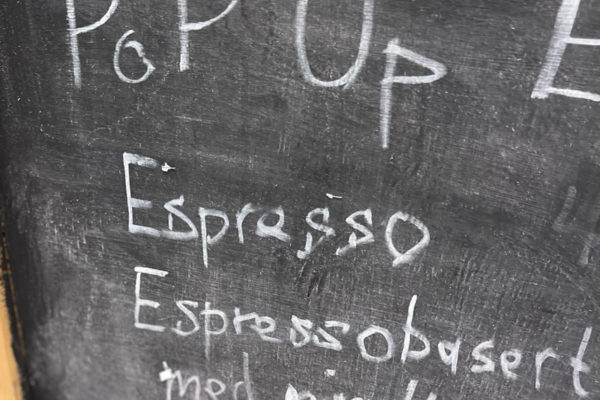 PoP Up E
Espresso
Espressobasert
med